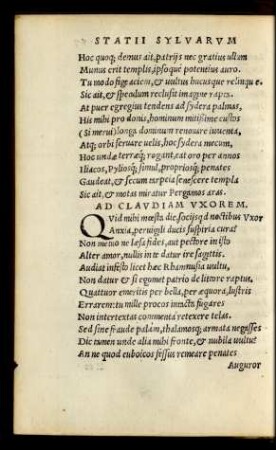 STATII SYLVARVM
Hoc quoq; demus ait, patrijs nec gratius ullam
Munus erit templis, ipsoq; potentius auro.
Tu modo fige aciem, & uultus hucusque relinque.
Sic ait, & speculum reclusit imagine rapta.
At puer egregius tendens ad sydera palmas,
His mihi pro donis, hominum mitissime custos
(Si merui) longa dominum renouare iuuenta,
Atq; orbi seruare uelis, hoc sydera mecum,
Hoc undæ terræq; rogant, eat oro per annos
Iliacos, Pyliosq; simul, propriosq; penates
Gaudeat, & secum tarpeia senescere templa
Sic ait, & motas miratur Pergamos aras.
AD CLAVDIAM VXOREM.
QVid mihi mœsta die, socijsq́; noctibus Vxor
Anxia, peruigili ducis suspiria cura?
Non metuo ne læsa fides, aut pectore in isto
Alter amor, nullis in te datur ire sagittis.
Audiat infesto licet hæc Rhamnusia uultu,
Non datur & si egomet patrio de litore raptus.
Quattuor emeritis per bella, per æquora, lustris
Errarem: tu mille procos intacta fugares
Non intertextas commenta retexere telas.
Sed sine fraude palàm, thalamosq; armata negasses
Dic tamen unde alia mihi fronte, & nubila uultu?
An ne quod euboicos fessus remeare penates
Auguror